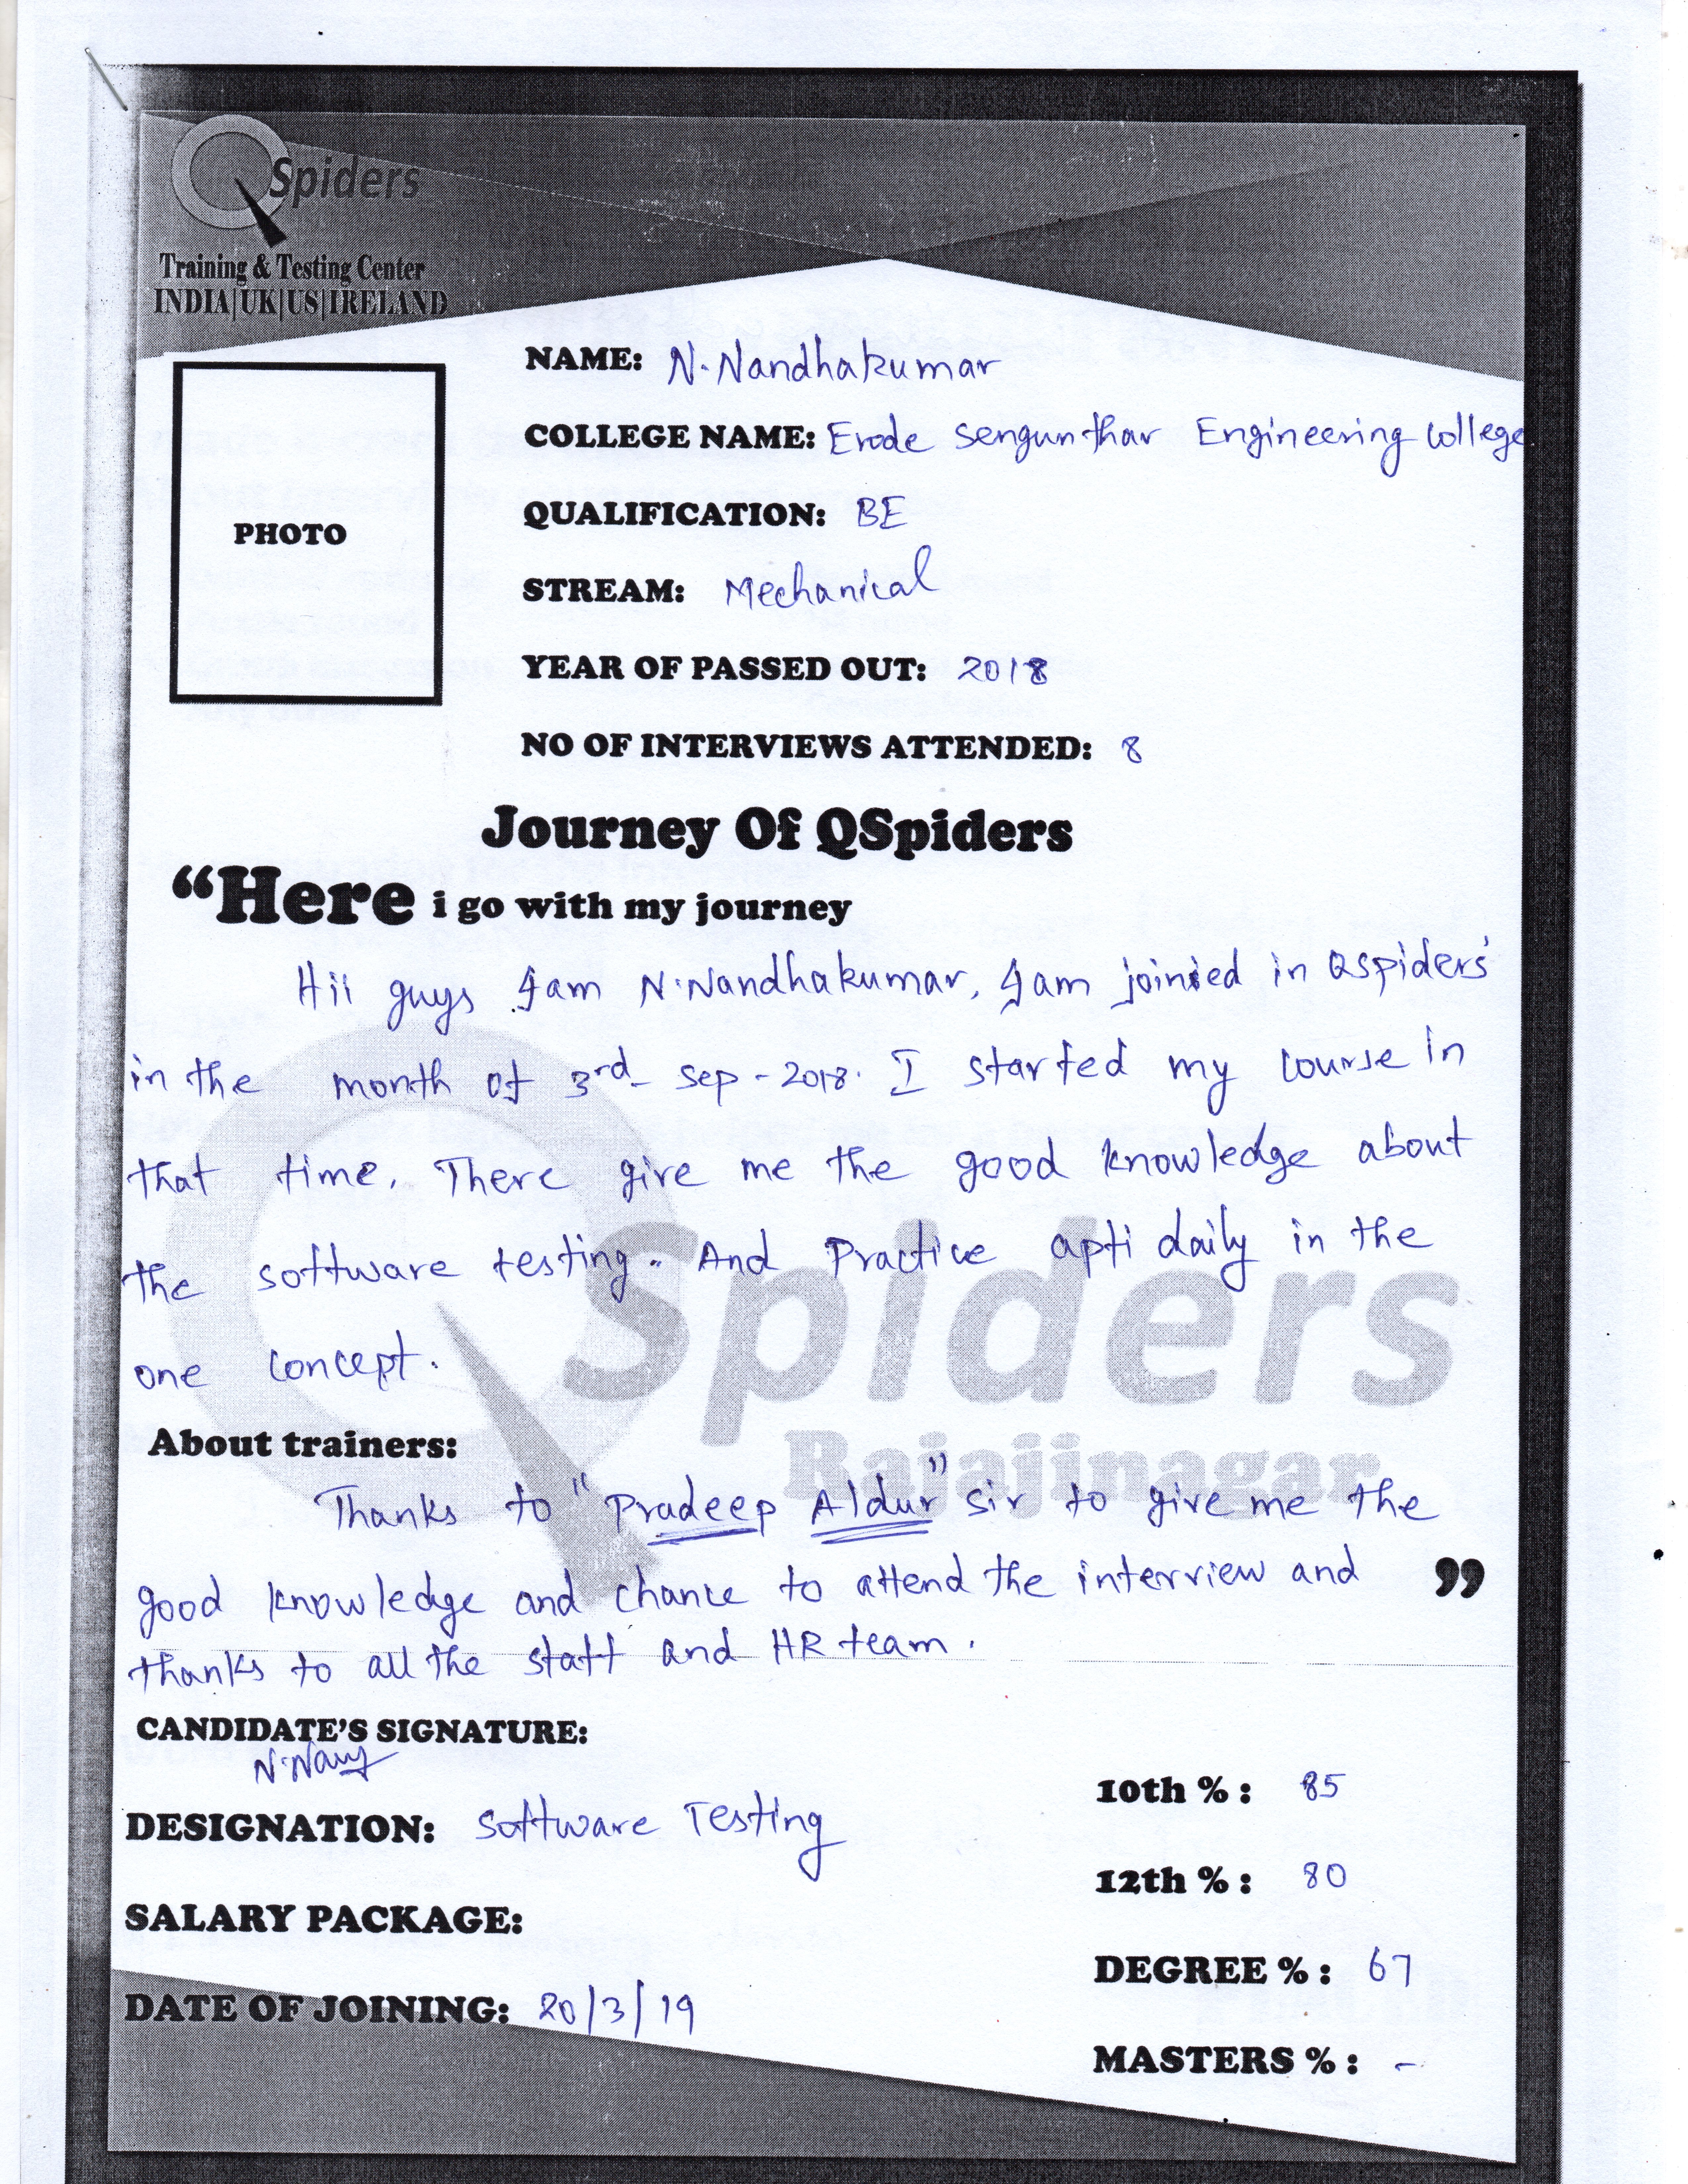 QSpiders
Training & Testing Center
INDIA|UK|US|IRELAND
PHOTO
NAME: N. Nandhakumar
COLLEGE NAME: Erode Sengunthar Engineering College
QUALIFICATION: BE
STREAM: Mechanical
YEAR OF PASSED OUT: 2018
NO OF INTERVIEWS ATTENDED: 8
Journey Of QSpiders
“Here i go with my journey
Hii guys I am N.Nandhakumar, I am joinied in Qspiders'
in the month of 3rd sep - 2018. I started my course in
that time. There give me the good knowledge about
the software testing. And Practice apti daily in the
one concept.
QSpiders
Rajajinagar
About trainers:
Thanks to "Pradeep Aldur" sir to give me the
good knowledge and chance to attend the interview and ”
thanks to all the staff and HR team.
CANDIDATE'S SIGNATURE:
DESIGNATION: Software Testing
SALARY PACKAGE:
DATE OF JOINING: 20/3/19
10th % : 85
12th % : 80
DEGREE % : 67
MASTERS % : -